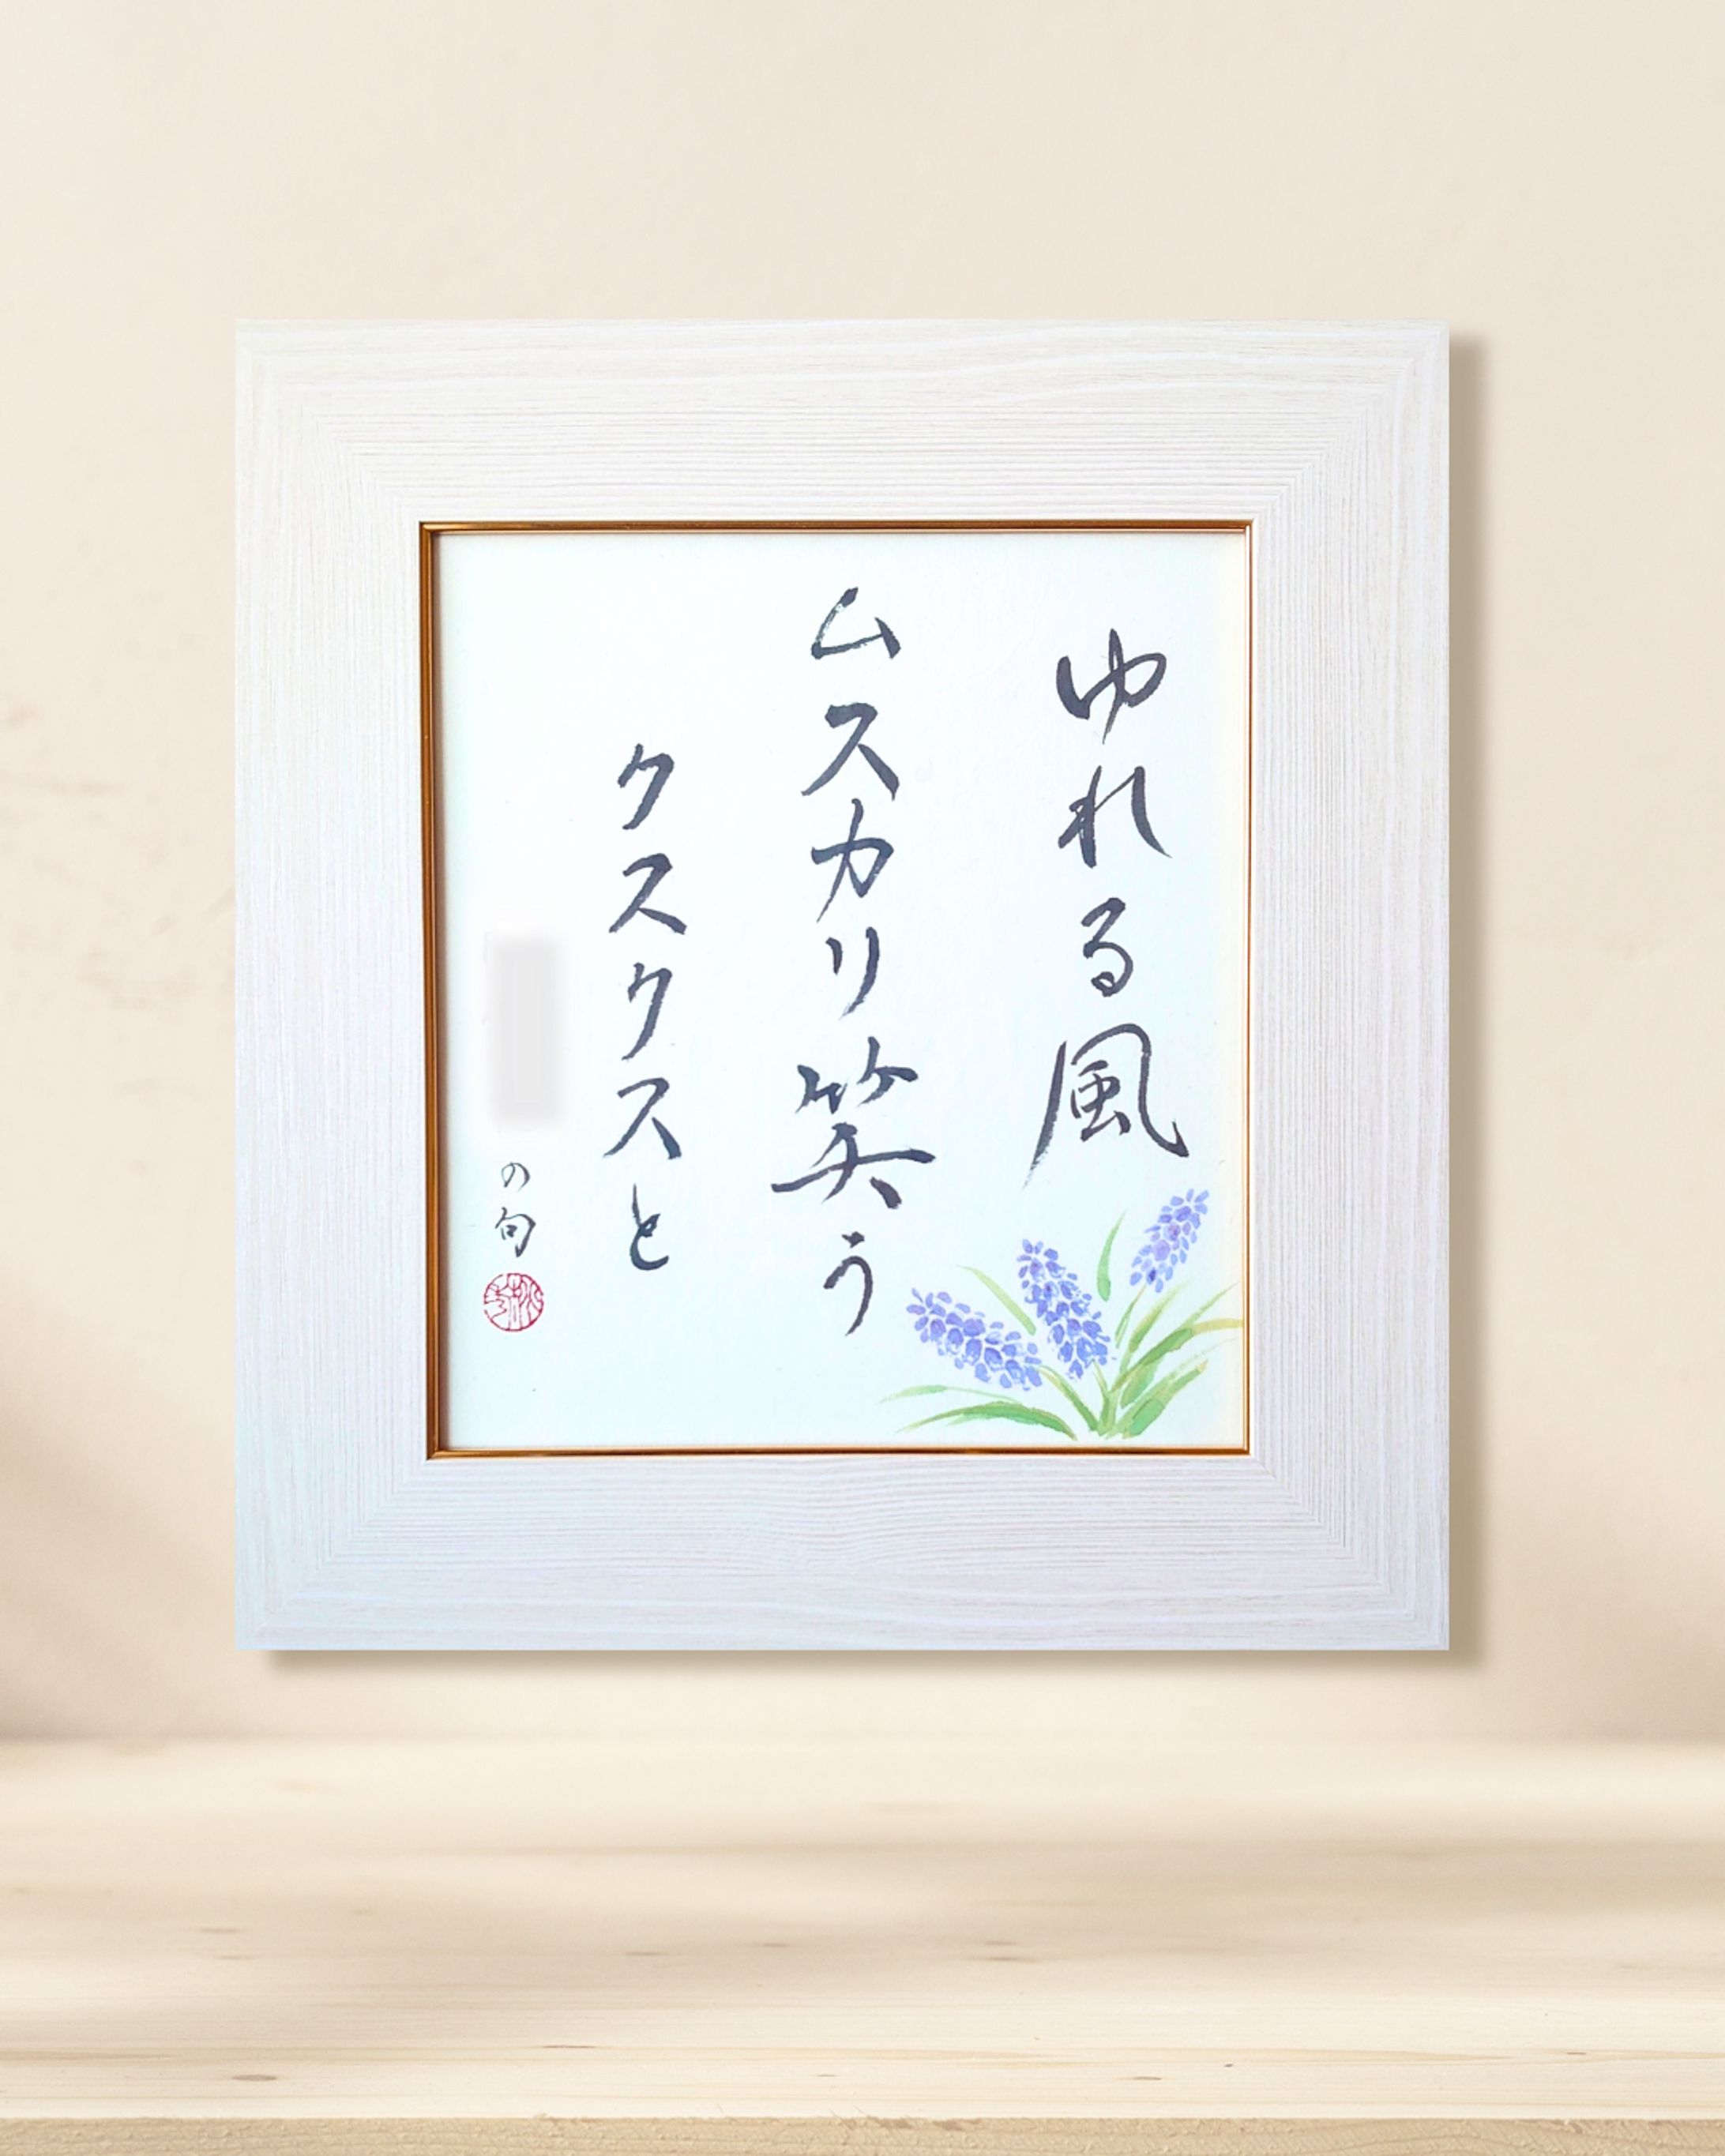 ゆれる風
ムスカリ笑う
クスクスと
の句